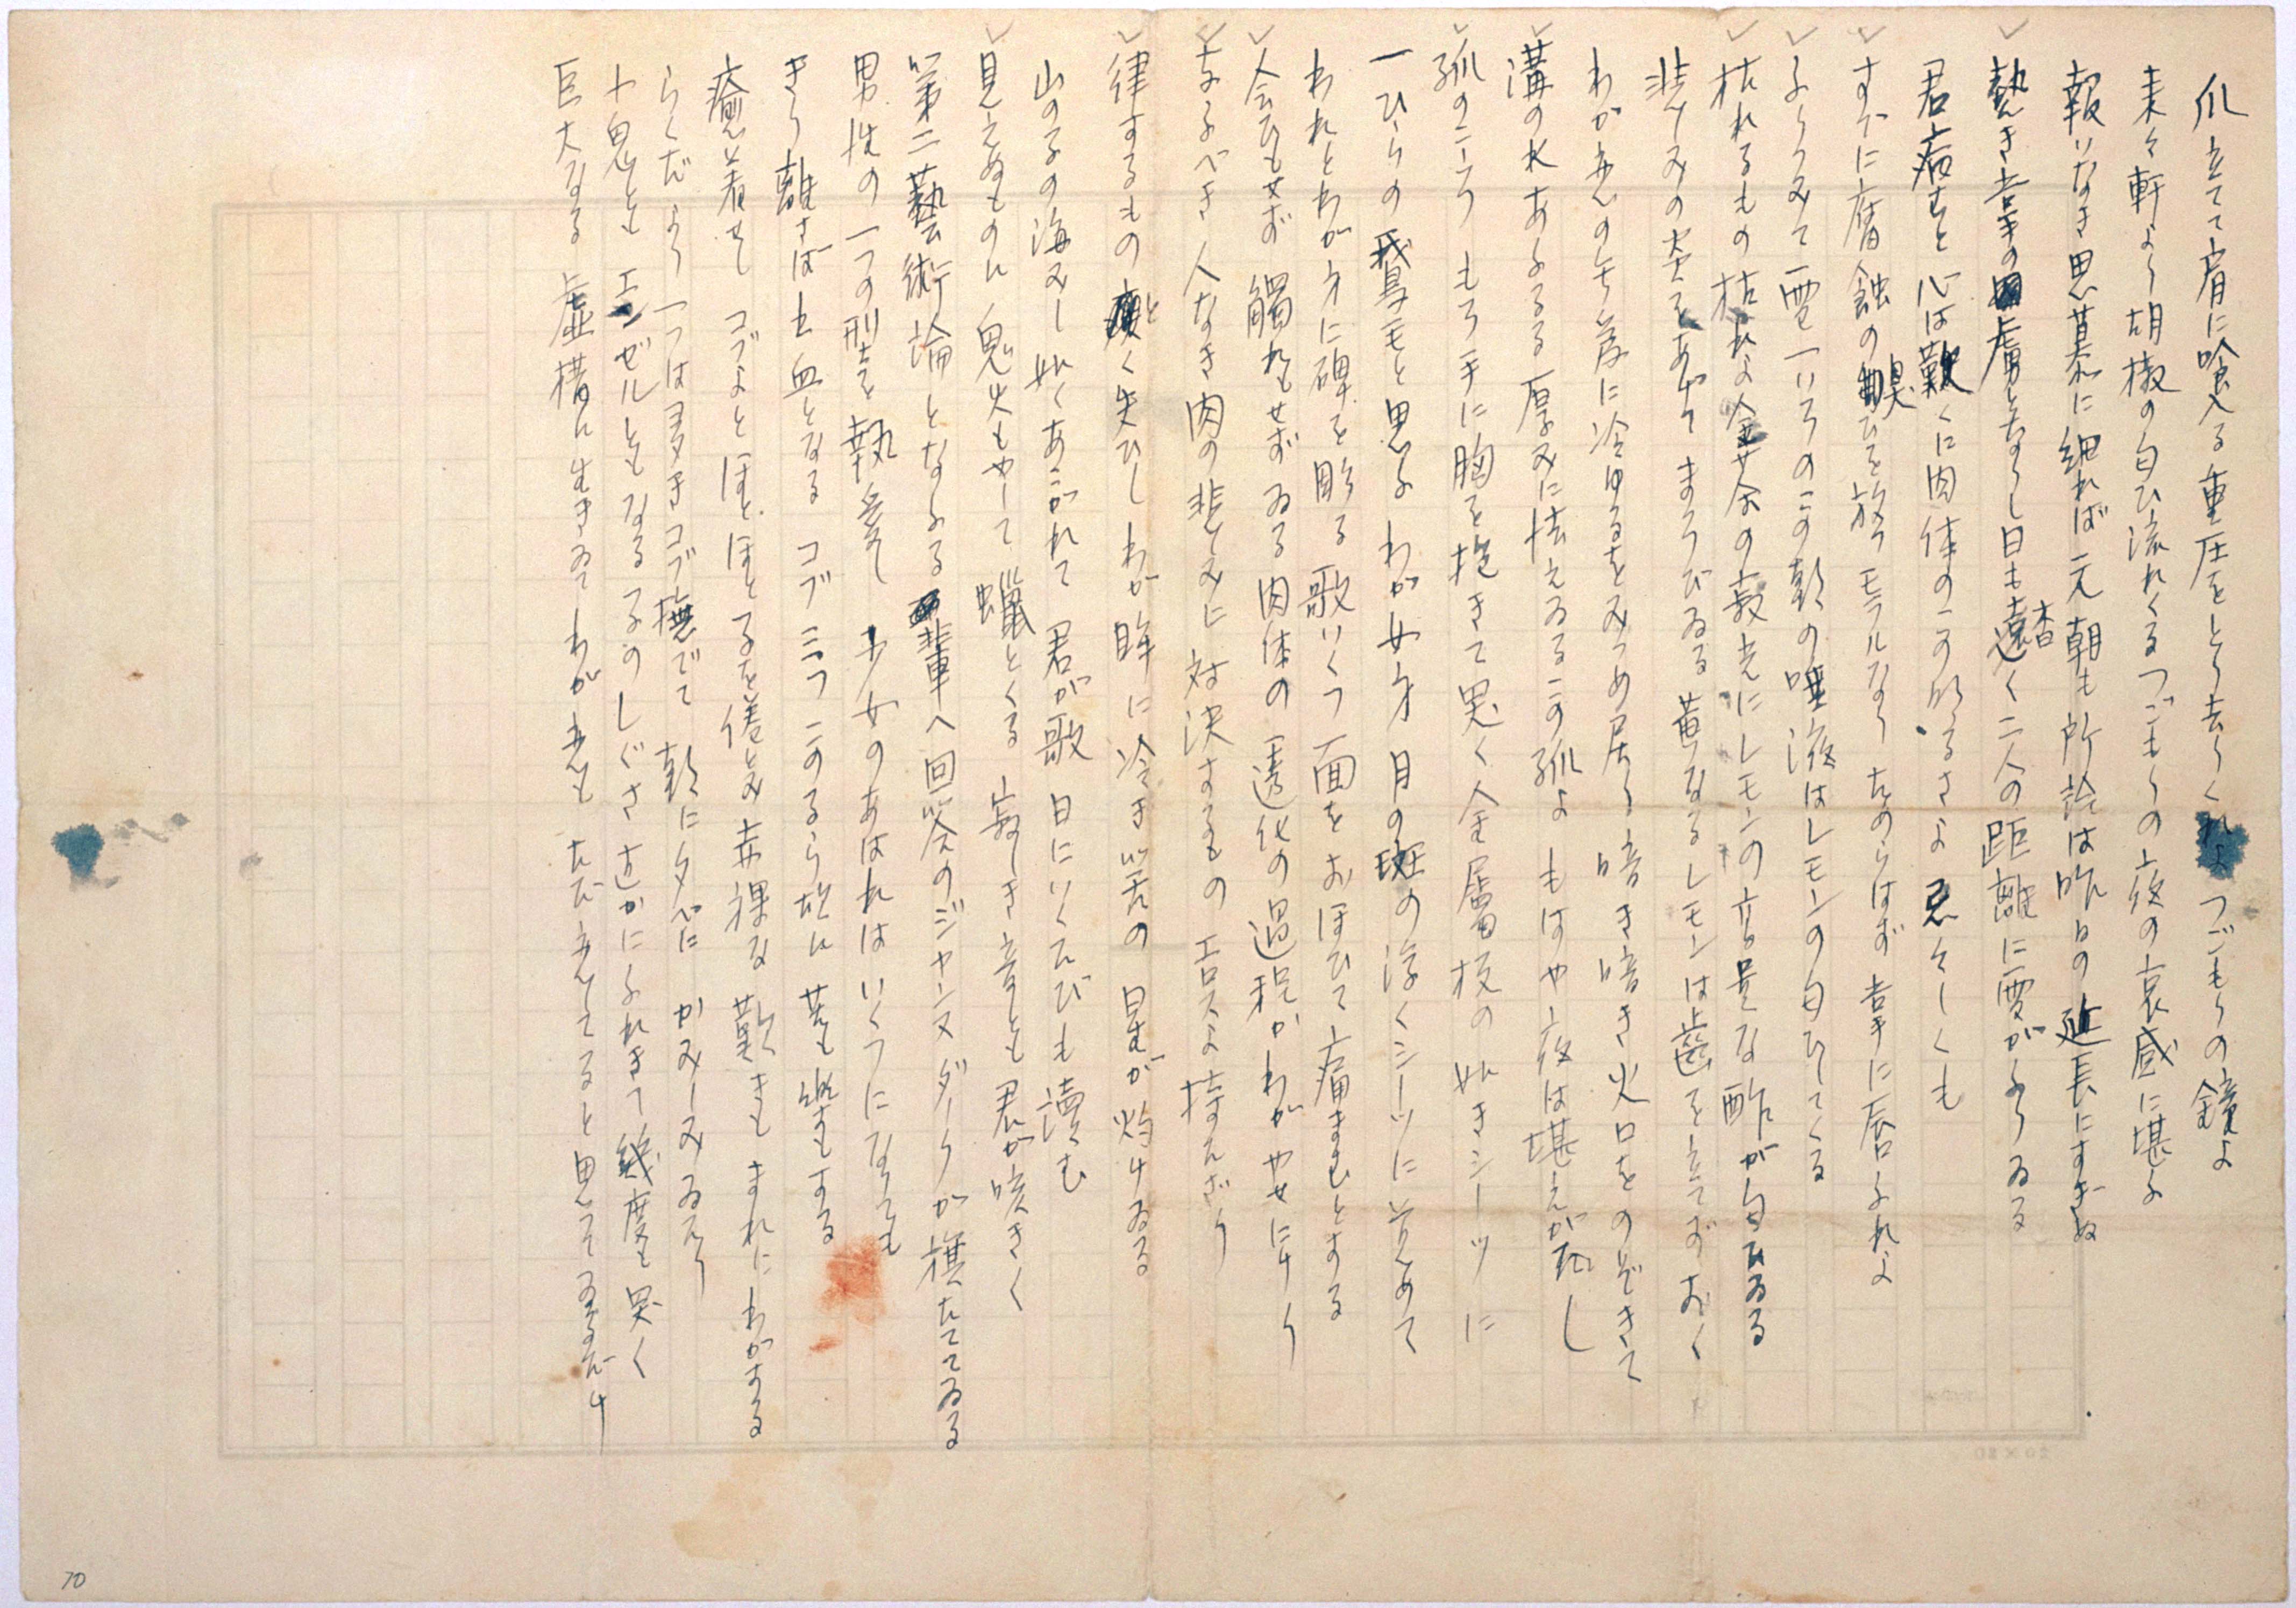 爪立てて肩に喰入る重圧をとり去りくれよつごもりの鐘よ
来々軒より胡椒の匂ひ流れくるつごもりの夜の哀感に堪よ
報いなき思慕に細れば元朝も所詮は昨日の延長にすぎぬ
熱き掌の虜となりし日も杳く二人の距離に雪がふりゐる
君病むと心は歎くに肉体のこの明るさよ忌々しくも
すでに腐蝕の臭ひを放つモラルなりためらはず掌に唇ふれよ
ふりつみて雪一いろのこの朝の唾液はレモンの匂ひしてくる
枯れるもの枯れよ金茶の寂光にレモンの立昇な酢が匂ひゐる
悲しみの炎をあげてまろびゐる黄なるレモンは歯を立てずおく
わが恋の年歳に冷ゆるをみつめ居り暗き暗き火口をのぞきて
溝の水あふるる厚みに怯えゐるこの孤よもはや夜は堪えがたし
孤のこころもろ手に胸を抱きて思く金属板の如きシーツに
一ひらの鵞毛と思ふわが女身月の斑の浮くシーツに覚めて
われとわが身に碑を彫る歌いくつ面をおほひて痛まむとする
会ひもせず觸れもせずゐる肉体の透化の過程かわがやせにけり
なるべき人なき肉の悲しみに対決するものエロスよ持たざり
律するもの と く失ひしわが眸に冷き空の星が灼けゐる
山の子の海みし如くあこがれて君が歌日にいくたびも讀む
見えぬものに鬼火もやして蠟とくる寂しき音とも君が咳きく
第二藝術論となふる輩へ回答のジャンヌダークが旗たててゐる
男性の一つの型を執着し少女のあはれはいくつになりても
きり離さば土血となるコブ三つこのるら故に苦も楽もする
癒着せしコブよとほとほとるを倦とみ赤裸な歎きもまれにわがする
らくだよりーつは多きコブ撫でて朝に夕べにかみしみゐたり
小鬼ともエンゼルともなる子のしぐさ近かにふれきて幾度も思く
巨大なる虚構に生きゐてわが恋もただ恋してると思つてゐるだけ
20×20
70